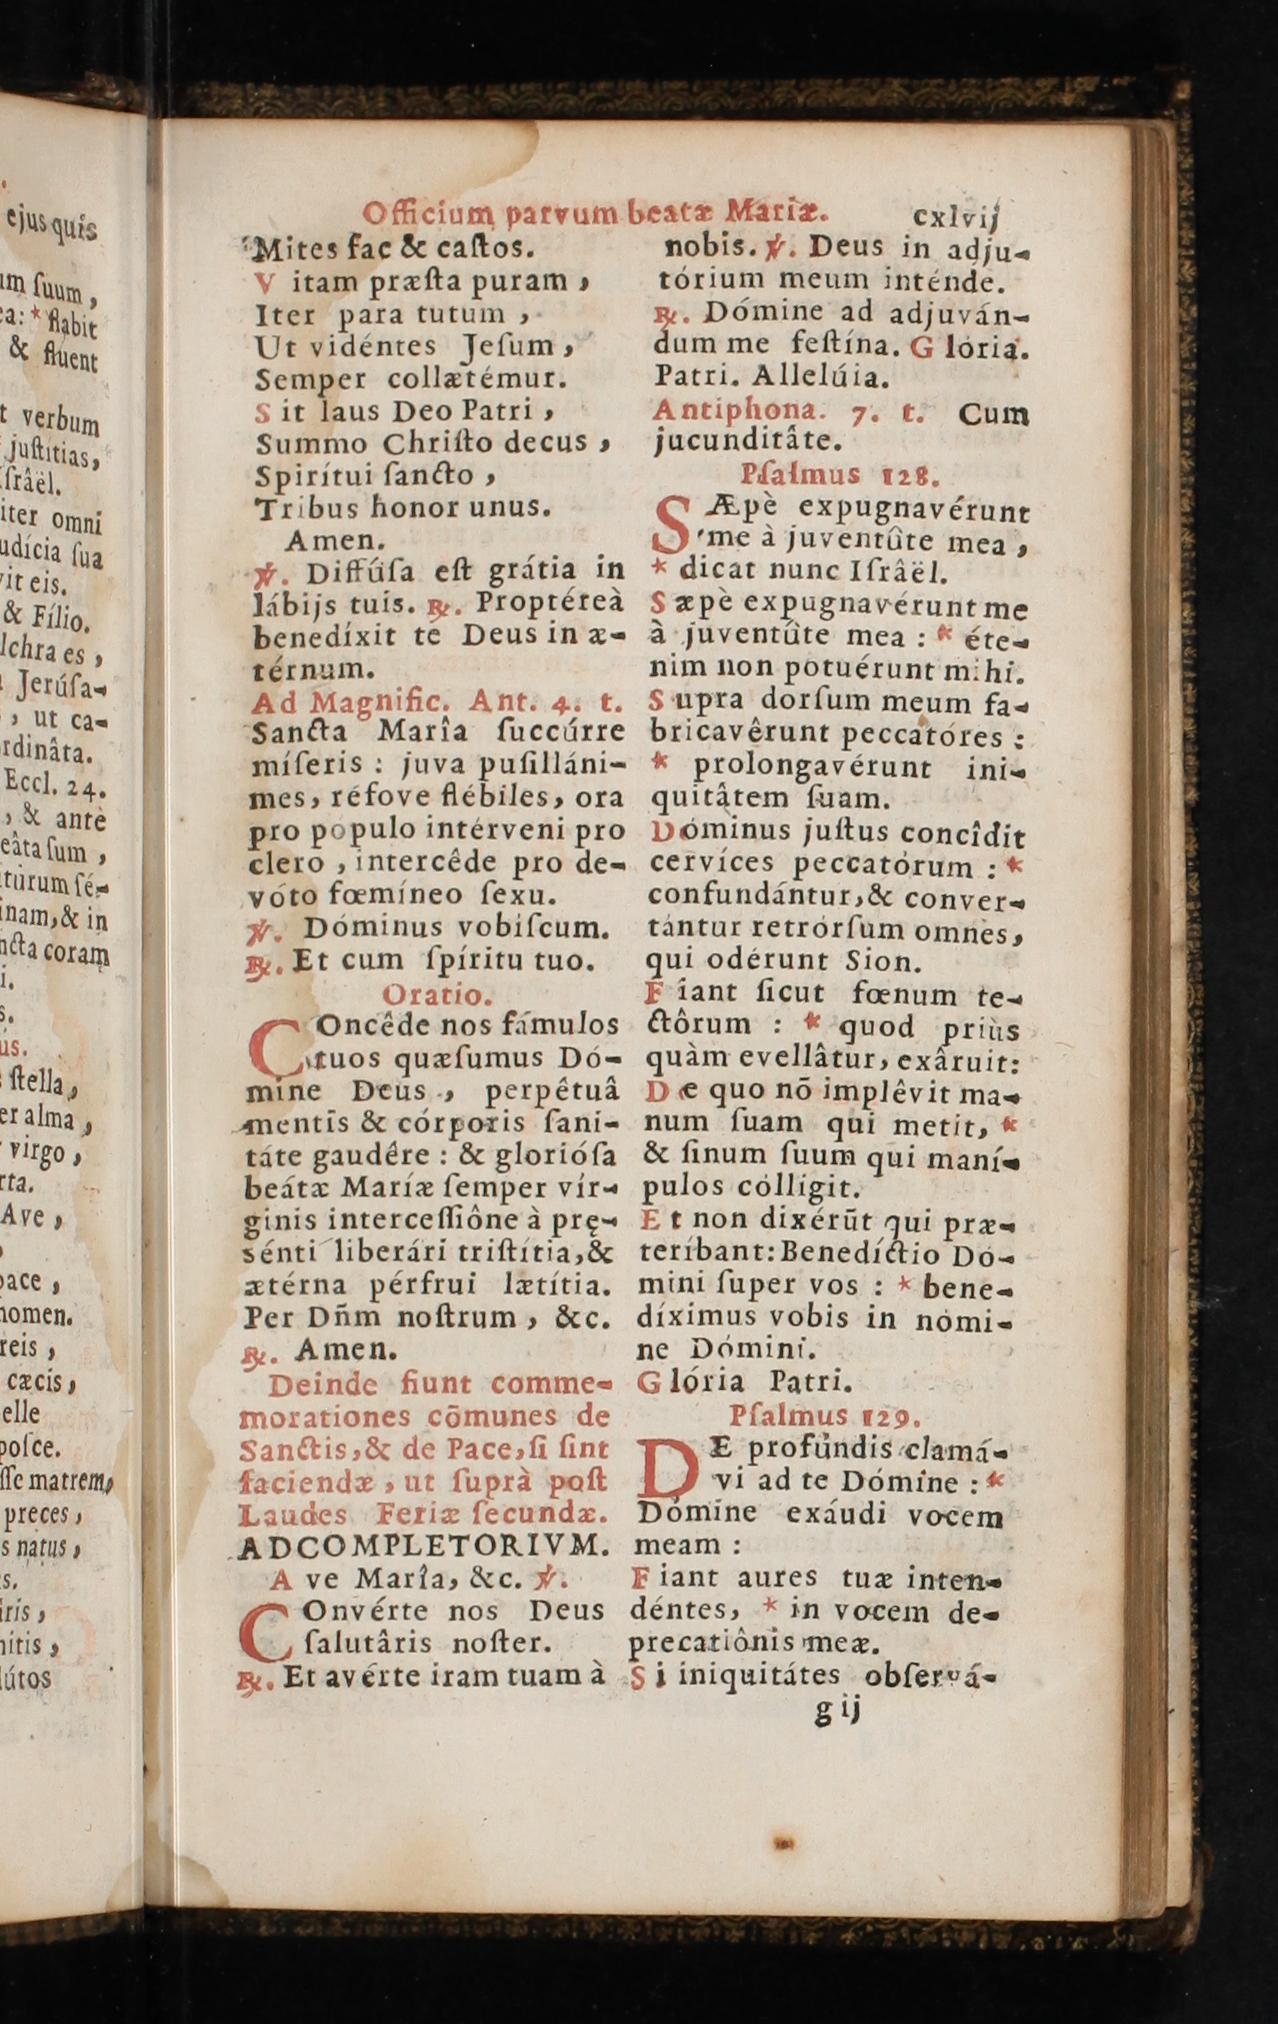 ejus quis
um ſuum,
ea: * flabit
& fluent
t verbum
juſtitias,
Iſrâël.
iter omni
udícia ſua
vit eis.
& Fílio.
lchra es,
Jerúſa-
, ut ca-
rdinâta.
Eccl. 24.
, & antè
eâta ſum,
turum ſé-
inam, & in
ncta coram
i.
s.
us.
ſtella,
er alma,
virgo,
rta.
Ave,
pace,
nomen.
reis,
cæcis,
elle
poſce.
ſſe matrem,
preces,
s natus,
s.
iris,
nitis,
lútos
Officium parvum beatæ Mariæ. cxlvij
Mites fac & caſtos.
V itam præſta puram,
Iter para tutum,
Ut vidéntes Jeſum,
Semper collætémur.
S it laus Deo Patri,
Summo Chriſto decus,
Spirítui ſancto,
Tribus honor unus.
Amen.
℣. Diffúſa eſt grátia in
lábijs tuis. ℟. Proptéreà
benedíxit te Deus in æ-
térnum.
Ad Magnific. Ant. 4. t.
Sancta Marîa ſuccúrre
míſeris : juva puſilláni-
mes, réfove flébiles, ora
pro populo intérveni pro
clero, intercêde pro de-
vóto fœmíneo ſexu.
℣. Dóminus vobiſcum.
℟. Et cum ſpíritu tuo.
Oratio.
COncêde nos fámulos
tuos quæſumus Dó-
mine Deus, perpétuâ
mentis & córporis ſani-
táte gaudêre : & glorióſa
beátæ Maríæ ſemper vír-
ginis interceſſiône à prę-
sénti liberári triſtítia, &
ætérna pérfrui lætítia.
Per Dñm noſtrum, &c.
℟. Amen.
Deinde fiunt comme-
morationes cōmunes de
Sanctis, & de Pace, ſi ſint
faciendæ, ut ſuprà poſt
Laudes Feriæ ſecundæ.
AD COMPLETORIVM.
A ve Marîa, &c. ℣.
COnvérte nos Deus
ſalutâris noſter.
℟. Et avérte iram tuam à
nobis. ℣. Deus in adju-
tórium meum inténde.
℟. Dómine ad adjuván-
dum me feſtína. G lória.
Patri. Allelúia.
Antiphona. 7. t. Cum
jucunditâte.
Pſalmus 128.
SÆpè expugnavérunt
me à juventûte mea,
* dicat nunc Iſrâël.
S æpè expugnavérunt me
à juventûte mea : * éte-
nim non potuérunt mihi.
S upra dorſum meum fa-
bricavêrunt peccatóres :
* prolongavérunt ini-
quitâtem ſuam.
Dóminus juſtus concîdit
cervíces peccatórum : *
confundántur, & conver-
tántur retrórſum omnes,
qui odérunt Sion.
F iant ſicut fœnum te-
ctôrum : * quod priùs
quàm evellâtur, exâruit:
D e quo nō implêvit ma-
num ſuam qui metit, *
& ſinum ſuum qui maní-
pulos cólligit.
E t non dixérūt qui præ-
teríbant: Benedíctio Dó-
mini ſuper vos : * bene-
díximus vobis in nómi-
ne Dómini.
G lória Patri.
Pſalmus 129.
DE profúndis clamá-
vi ad te Dómine : *
Dómine exáudi vocem
meam :
F iant aures tuæ inten-
déntes, * in vocem de-
precatiônis meæ.
S i iniquitátes obſervá-
g ij